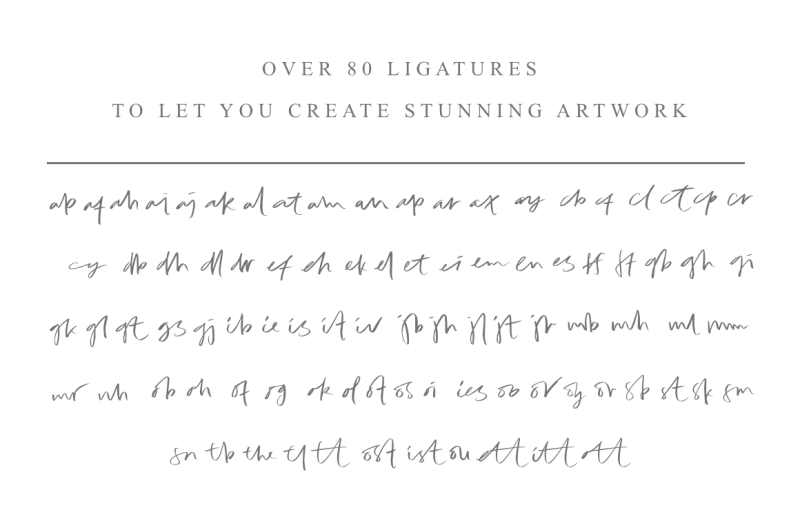 OVER 80 LIGATURES
TO LET YOU CREATE STUNNING ARTWORK
ab af ah ai aj ak al at am an ap ar ax ay cb cf cl ct cp cr
cy db dh dl dr ef eh ek el et ei em en es ff ft gb gh gi
gk gl gt gs gj ib ie is it iv jb jh jl jt jr mb mh ml mm
mr nh ob oh of og ok ol ot os oi ies oo ov oy or sb st sk sm
sn tb the tl tt ost ist ou ett itt att